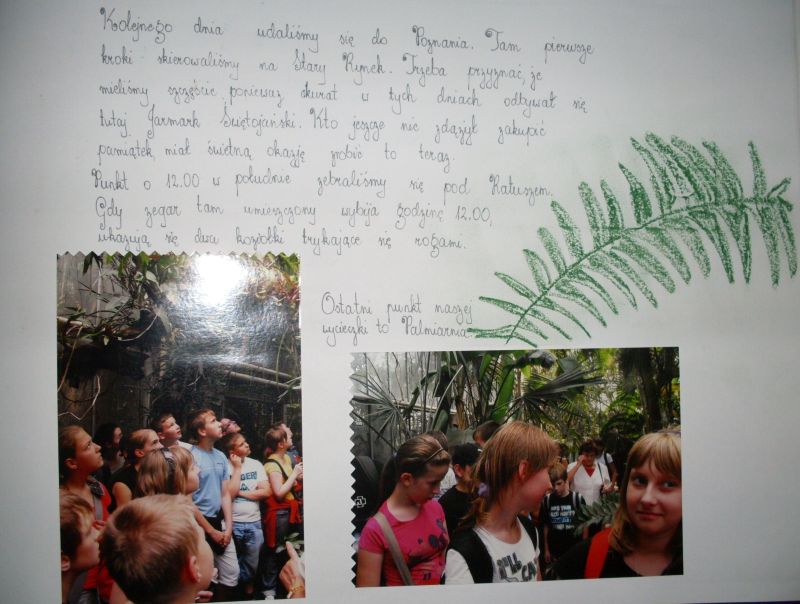 Kolejnego dnia udaliśmy się do Poznania. Tam pierwsze
kroki skierowaliśmy na Stary Rynek. Trzeba przyznać, że
mieliśmy szczęście ponieważ akurat w tych dniach odbywał się
tutaj Jarmark Świętojański. Kto jeszcze nie zdążył zakupić
pamiątek, miał świetną okazję zrobić to teraz.
Punkt o 12.00 w południe zebraliśmy się pod Ratuszem.
Gdy zegar tam umieszczony wybija godzinę 12.00,
ukazują się dwa koziołki trykające się rogami.
Ostatni punkt naszej
wycieczki to Palmiarnia.